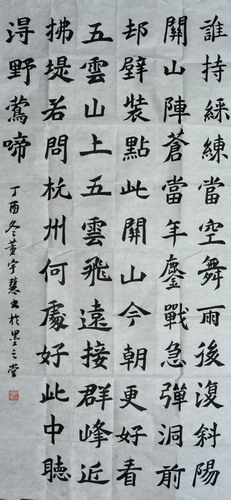 誰持綵練當空舞雨後復斜陽
關山陣蒼當年鏖戰急彈洞前
邨壁裝點此關山今朝更好看
五雲山上五雲飛遠接群峰近
拂堤若問杭州何處好此中聽
淂野鶯啼
丁酉冬董宇慧書於墨之堂